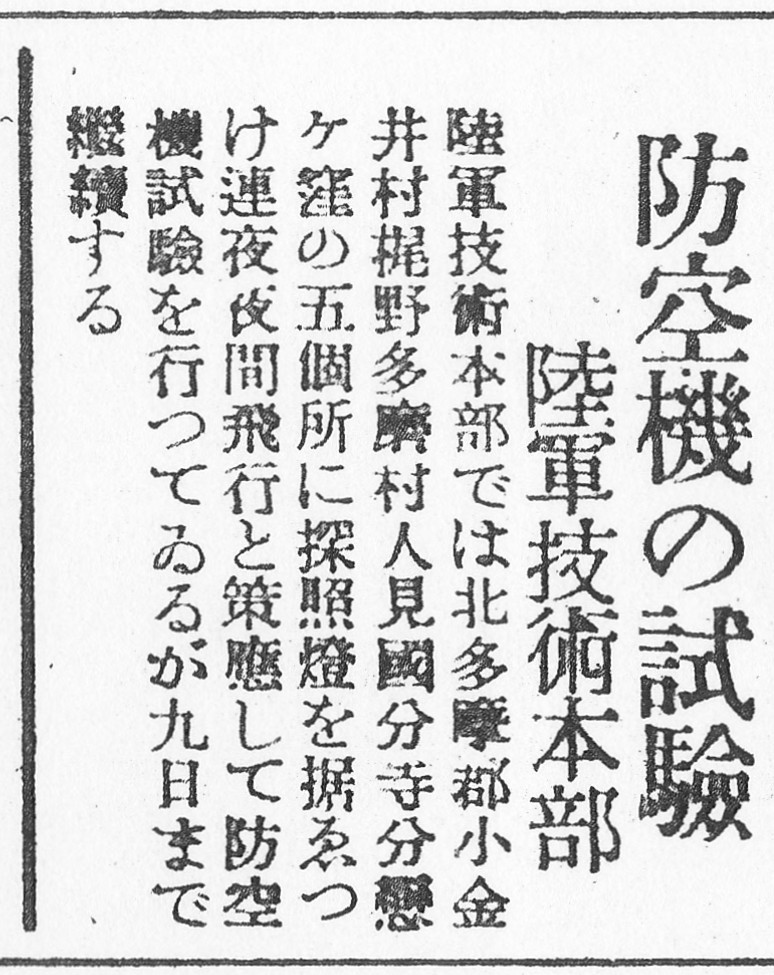 防空機の試驗
陸軍技術本部
陸軍技術本部では北多摩郡小金
井村梶野多磨村人見國分寺分戀
ケ窪の五個所に探照燈を据ゑつ
け連夜夜間飛行と策應して防空
機試驗を行つてゐるが九日まで
繼續する